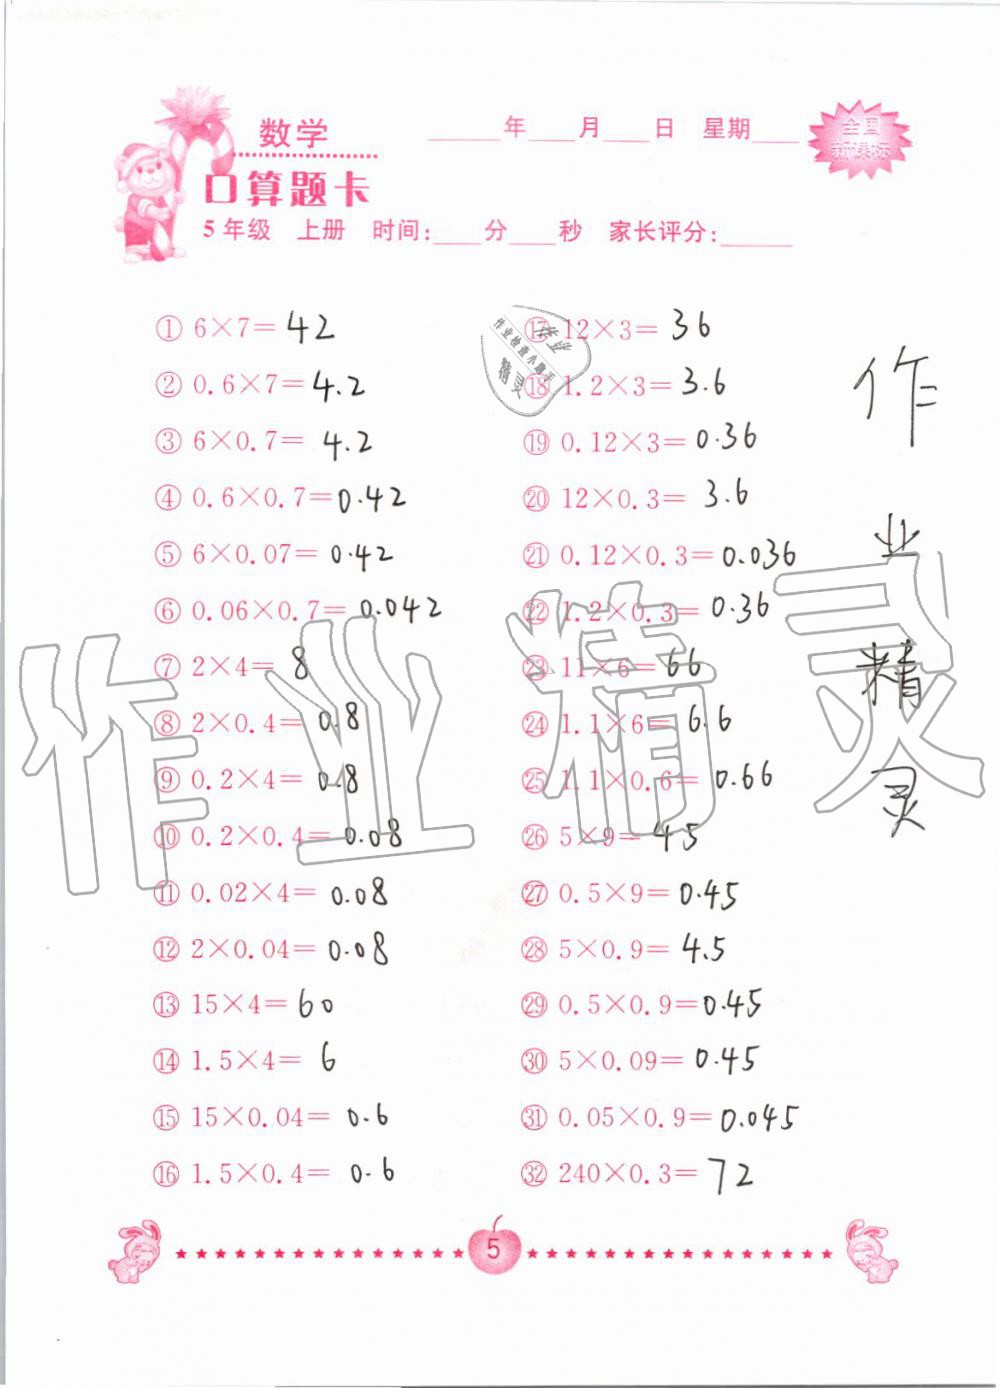 数学
____年____月____日 星期____
全国
新课标
口算题卡
5年级 上册 时间:____分____秒 家长评分:____
① 6×7= 42
② 0.6×7= 4.2
③ 6×0.7= 4.2
④ 0.6×0.7= 0.42
⑤ 6×0.07= 0.42
⑥ 0.06×0.7= 0.042
⑦ 2×4= 8
⑧ 2×0.4= 0.8
⑨ 0.2×4= 0.8
⑩ 0.2×0.4= 0.08
⑪ 0.02×4= 0.08
⑫ 2×0.04= 0.08
⑬ 15×4= 60
⑭ 1.5×4= 6
⑮ 15×0.04= 0.6
⑯ 1.5×0.4= 0.6
⑰ 12×3= 36
⑱ 1.2×3= 3.6
⑲ 0.12×3= 0.36
⑳ 12×0.3= 3.6
㉑ 0.12×0.3= 0.036
㉒ 1.2×0.3= 0.36
㉓ 11×6= 66
㉔ 1.1×6= 6.6
㉕ 1.1×0.6= 0.66
㉖ 5×9= 45
㉗ 0.5×9= 0.45
㉘ 5×0.9= 4.5
㉙ 0.5×0.9= 0.45
㉚ 5×0.09= 0.45
㉛ 0.05×0.9= 0.045
㉜ 240×0.3= 72
作业精灵
作业精灵
作业
作业检查小帮手
精灵
5